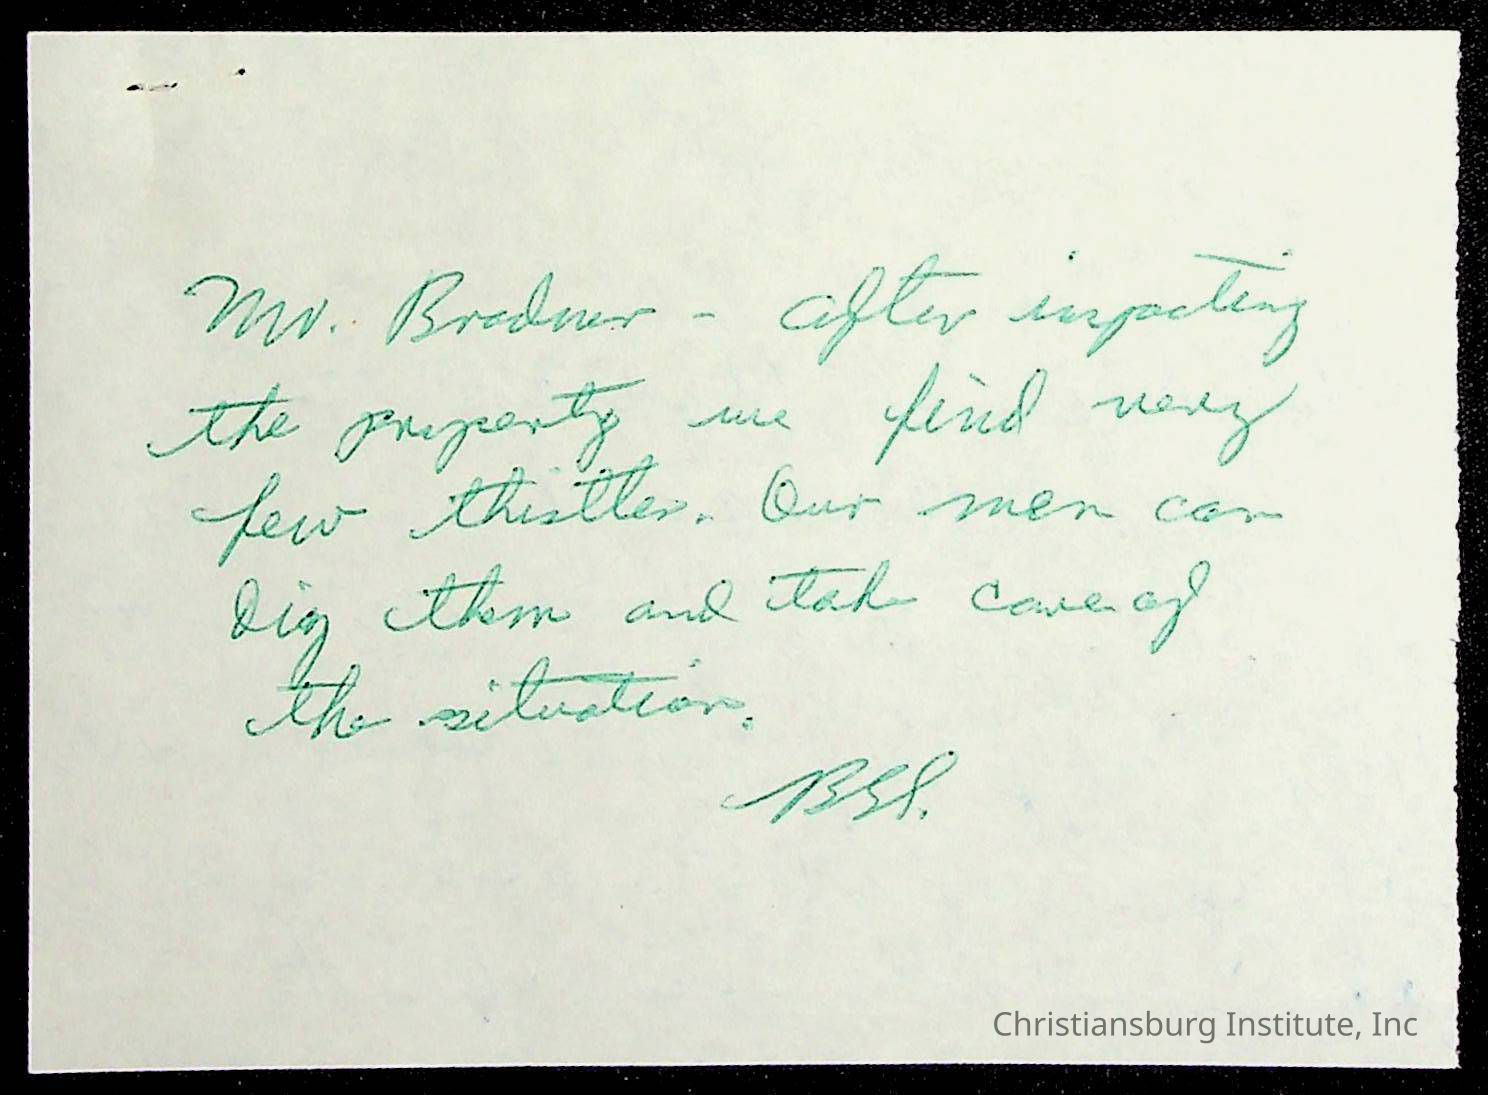 Mr. Bradner - After inspecting
the property we find very
few thistles. Our men can
Dig them and take care of
the situation.
Christiansburg Institute, Inc